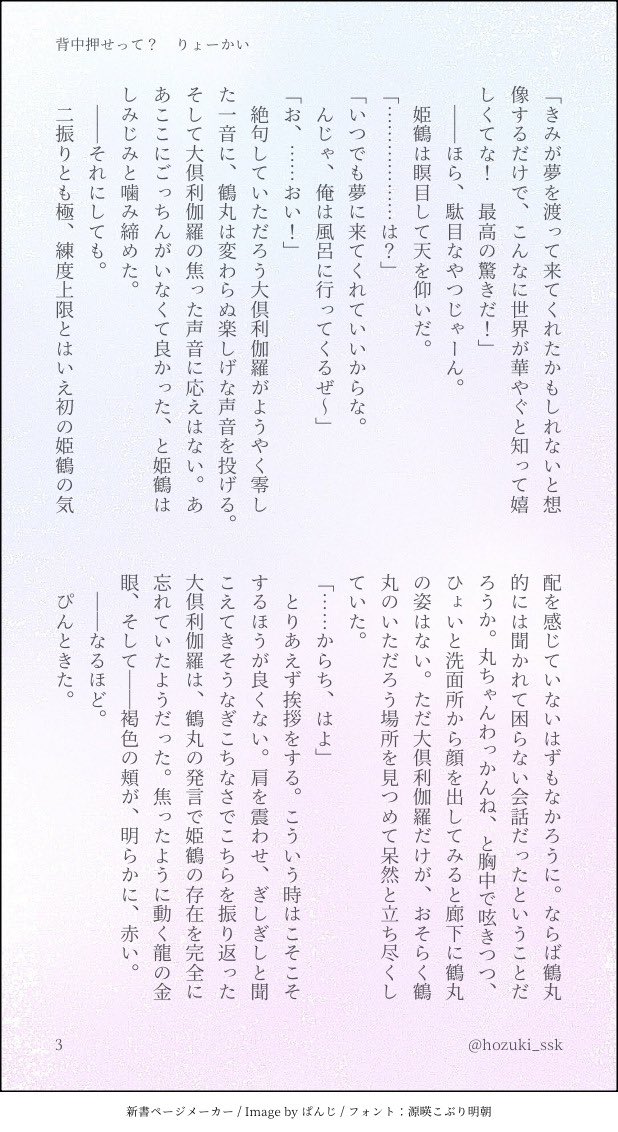 背中押せって？　りょーかい
「きみが夢を渡って来てくれたかもしれないと想
像するだけで、こんなに世界が華やぐと知って嬉
しくてな！　最高の驚きだ！」
　――ほら、駄目なやつじゃーん。
　姫鶴は瞑目して天を仰いだ。
「………………は？」
「いつでも夢に来てくれていいからな。
　んじゃ、俺は風呂に行ってくるぜ～」
「お、……おい！」
　絶句していただろう大倶利伽羅がようやく零し
た一音に、鶴丸は変わらぬ楽しげな声音を投げる。
そして大倶利伽羅の焦った声音に応えはない。あ
あここにごっちんがいなくて良かった、と姫鶴は
しみじみと噛み締めた。
　――それにしても。
　二振りとも極、練度上限とはいえ初の姫鶴の気
配を感じていないはずもなかろうに。ならば鶴丸
的には聞かれて困らない会話だったということだ
ろうか。丸ちゃんわっかんね、と胸中で呟きつつ、
ひょいと洗面所から顔を出してみると廊下に鶴丸
の姿はない。ただ大倶利伽羅だけが、おそらく鶴
丸のいただろう場所を見つめて呆然と立ち尽くし
ていた。
「……からち、はよ」
　とりあえず挨拶をする。こういう時はこそこそ
するほうが良くない。肩を震わせ、ぎしぎしと聞
こえてきそうなぎこちなさでこちらを振り返った
大倶利伽羅は、鶴丸の発言で姫鶴の存在を完全に
忘れていたようだった。焦ったように動く龍の金
眼、そして――褐色の頬が、明らかに、赤い。
　――なるほど。
　ぴんときた。
3
@hozuki_ssk
新書ページメーカー / Image by ぱんじ / フォント：源暎こぶり明朝